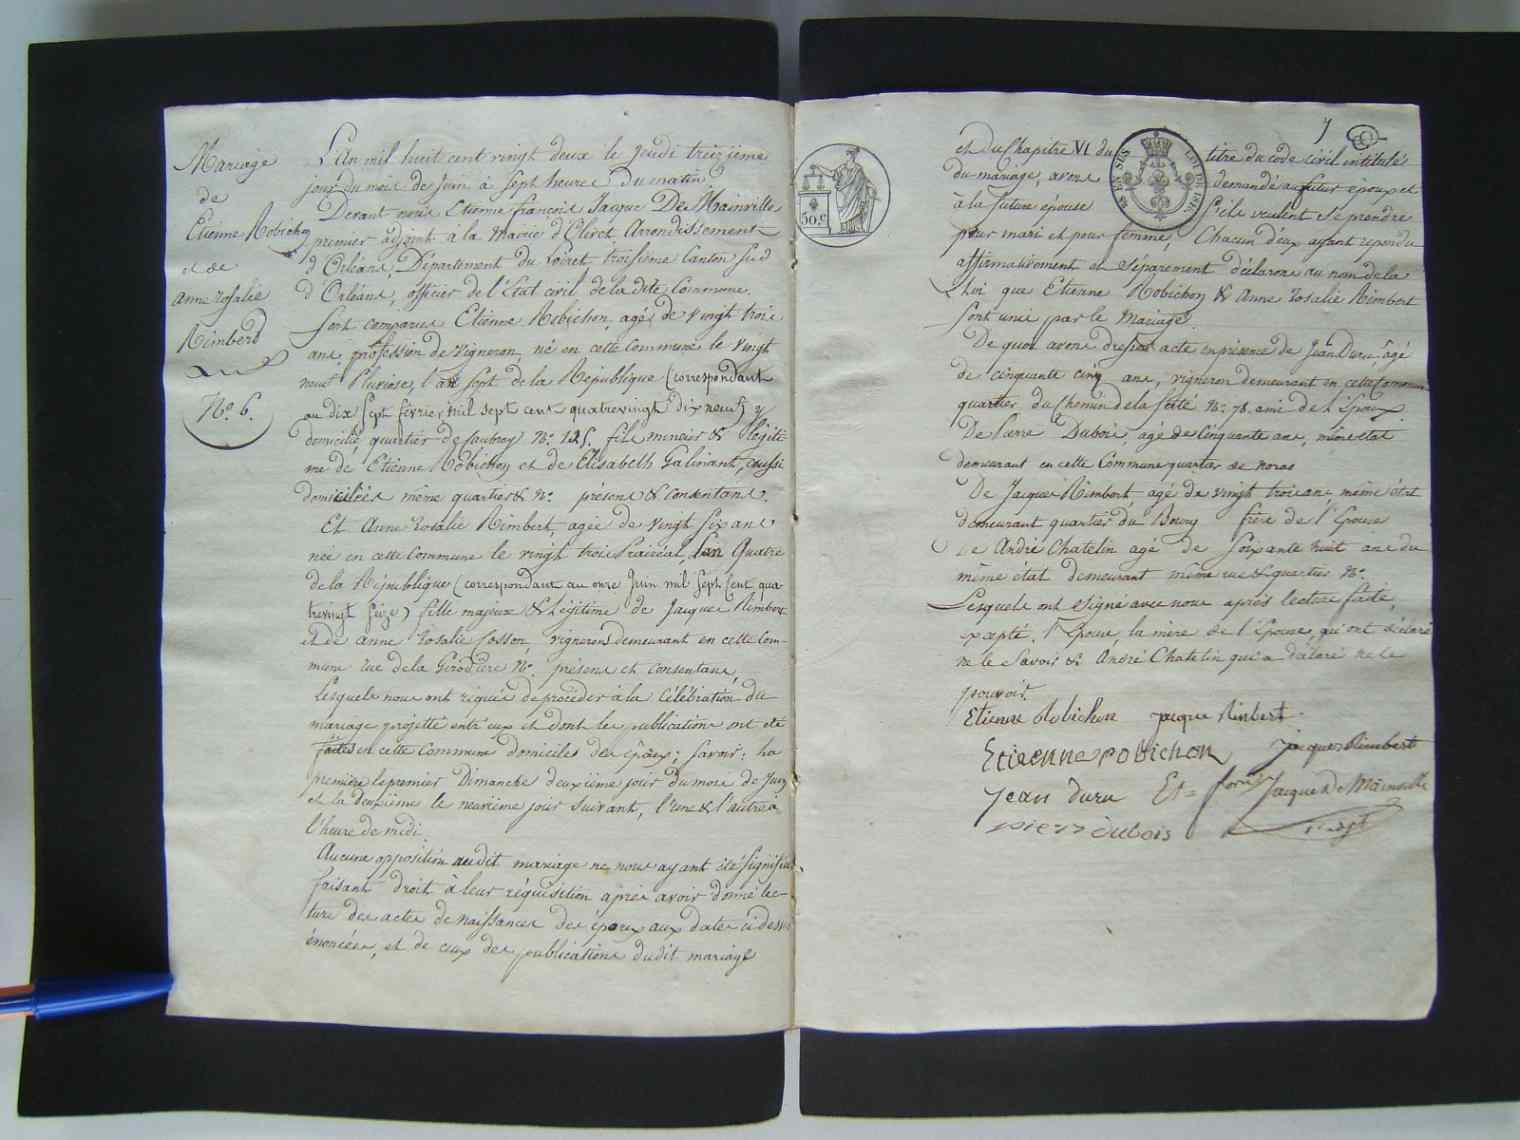 Mariage
de
Etienne Robichon
et de
Anne rosalie
Rimbert
N.º 6.
L'An mil huit cent vingt deux le Jeudi treizième
jour du mois de Juin à sept heures du matin
Devant nous Etienne françois Jacque De Mainville
premier adjoint à la Mairie d'Olivet Arrondissement
d'Orléans, Département du Loiret troisième Canton sud
d'Orléans, officier de l'Etat civil de la dite Commune.
Sont comparus Etienne Robichon, agé de vingt trois
ans, profession de vigneron, né en cette Commune le vingt
neuf Pluviose, l'an sept de la République (correspondant
au dix sept février mil sept cent quatrevingt dix neuf)
domicilié quartier de N.º 125. fils mineur & légiti-
me de Etienne Robichon et de Elisabeth Galinant, aussi
domiciliés même quartier & N.º présens & consentans.
Et Anne rosalie Rimbert, agée de vingt six ans
née en cette Commune le vingt trois Prairéal, l'an Quatre
de la République (correspondant au onze Juin mil sept cent qua
trevingt seize) fille majeure & légitime de Jacque Rimbert
et de anne rosalie Cosson, vignerons demeurant en cette Com-
mune rue de la N.º présens et consentans,
Lesquels nous ont réquis de procéder à la célébration du
mariage projetté entr'eux et dont les publications ont été
faites en cette Commune domicile des époux; savoir: la
première le premier Dimanche deuxième jour du mois de Juin
et la deuxième le neuvième jour suivant, l'une & l'autre à
l'heure de midi.
Aucune opposition audit mariage ne nous ayant été signifiée
faisant droit à leur réquisition après avoir donné lec-
ture des actes de naissances des époux aux dates ci dessus
énoncées, et de ceux des publications dudit mariage
50.c
7
et du Chapitre VI du titre du code civil intitulé
du mariage, avons demandé au futur époux et
à la future épouse s'ils veulent se prendre
pour mari et pour femme, Chacun d'eux ayant répondu
affirmativement et séparement déclarons au nom de la
Loi que Etienne Robichon & Anne rosalie Rimbert
sont unis par le mariage.
De quoi avons dressé acte en présence de Jean Duru, agé
de cinquante cinq ans, vigneron demeurant en cette Commune
quartier du Chemin de la ferté N.º 78. ami de l'Epoux.
De Pierre Dubois, agé de Cinquante ans, même état
demeurant en cette Commune quartier de
De Jacques Rimbert, agé de vingt trois ans même état
demeurant quartier du Bourg frère de l'Epouse
De André Chatelin agé de soixante huit ans du
même état demeurant même rue & quartier N.º
Lesquels ont signé avec nous après lecture faite,
excepté l'Epouse la mère de l'Epouse, qui ont déclaré
ne le savoir & André Chatelin qui a déclaré ne le
pouvoir.
Etienne Robichon jacque Rimbert
Etienne robichon jacques Rimbert
jean duru Et= fois Jacque De Mainville
pierre dubois 1.er adjt